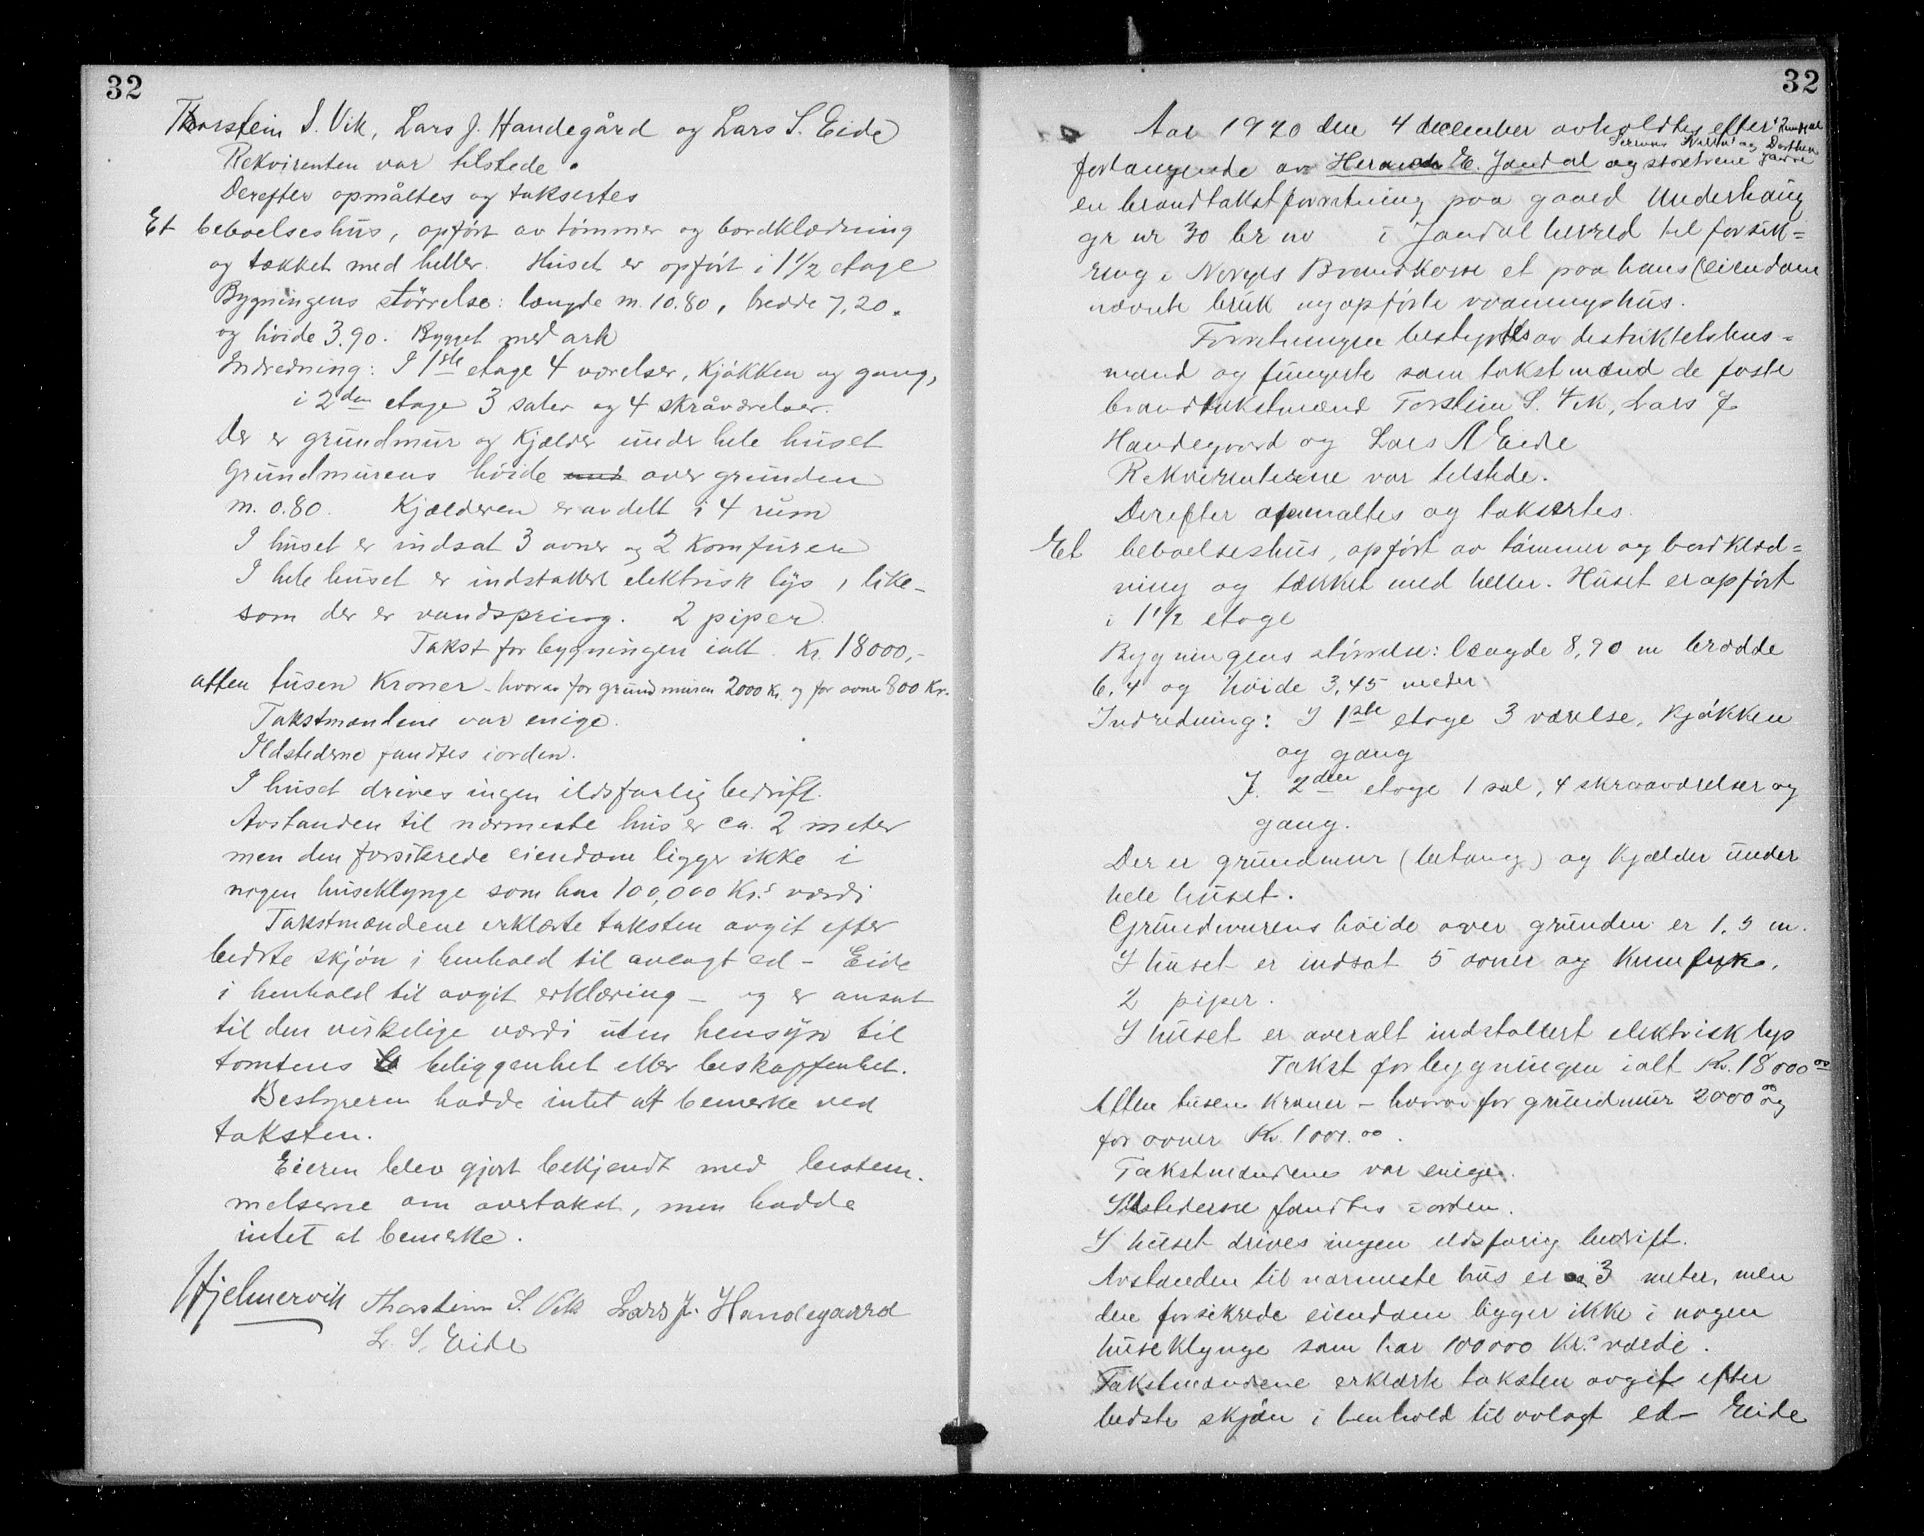 32
Thorstein S. Vik, Lars J. Handegård og Lars S. Eide
Rekvirenten var tilstede.
Derefter opmåltes og taksertes
Et beboelseshus, opført av tømmer og bordklædning
og tækket med heller. Huset er opført i 1 1/2 etage
Bygningens størrelse: længde m. 10.80, bredde 7,20.
og høide 3.90. Bygget med ark
Indredning: I 1ste etage 4 værelser, kjøkken og gang,
i 2den etage 3 saler og 4 skråværelser.
Der er grundmur og kjælder under hele huset
Grundmurens høide over grunden
m. 0.80. Kjælderen er avdelt i 4 rum
I huset er indsat 3 ovner og 2 komfurer
I hele huset er indstallert elektrisk lys, like-
som der er vandspring. 2 piper.
Takst for bygningen ialt. Kr. 18000,-
atten tusen kroner - hvorav for grundmuren 2000 Kr. og for ovner 800 Kr.
Takstmændene var enige.
Ildstederne fandtes iorden.
I huset drives ingen ildsfarlig bedrift.
Avstanden til nærmeste hus er ca. 2 meter
men den forsikrede eiendom ligger ikke i
nogen huseklynge som har 100,000 Kr.s værdi
Takstmændene erklærte taksten avgit efter
bedste skjøn i henhold til avlagt ed - Eide
i henhold til avgit erklæring - og er ansat
til den virkelige værdi uten hensyn til
tomtens beliggenhet eller beskaffenhet.
Bestyreren hadde intet at bemerke ved
taksten.
Eieren blev gjort bekjendt med bestem-
melserne om overtakst, men hadde
intet at bemerke.
Hjelmervik Thorstein S. Vik Lars J. Handegaard
L. S. Eide
32
Aar 1920 den 4 december avholdtes efter
forlangende av Herman E. Jondal og søstrene
en brandtakstforretning paa gaard Underhaug
gr nr 30 br nr i Jondal herred til forsik=
ring i Norges Brandkasse et paa hans (eiendom
nævnte bruk nyopførte vaaningshus.
Forretningen bestyrtes av distriktslens=
mand og fungerte som takstmænd de faste
brandtakstmænd Torstein S. Vik, Lars J
Handegaard og Lars S Eide
Rekvirenterne var tilstede.
Derefter opmaltes og taksertes.
Et beboelseshus, opført av tømmer og bordklæd=
ning og tækket med heller. Huset er opført
i 1 1/2 etage
Bygningens størrelse: længde 8,90 m bredde
6.4 og høide 3,45 meter
Indredning: I 1ste etage 3 værelse, kjøkken
og gang
I. 2den etage 1 sal, 4 skraaværelser og
gang.
Der er grundmur (betong) og kjælder under
hele huset.
Grundmurens høide over grunden er 1.5 m.
I huset er indsat 5 ovner og
2 piper.
I huset er overalt indstallert elektrisk lys
Takst for bygningen ialt Kr. 18000 00
Atten tusen kroner - hvorav for grundmur 2000 00 og
for ovner Kr. 1000.00.
Takstmændene var enige.
Ildstederne fandtes i orden.
I huset drives ingen ildsfarig bedrift.
Avstanden til nærmeste hus er 3 meter, men
den forsikrede eiendom ligger ikke i nogen
huseklynge som har 100000 Kr.s værdi.
Takstmændene erklærte taksten avgit efter
bedste skjøn i henhold til avlagt ed - Eide